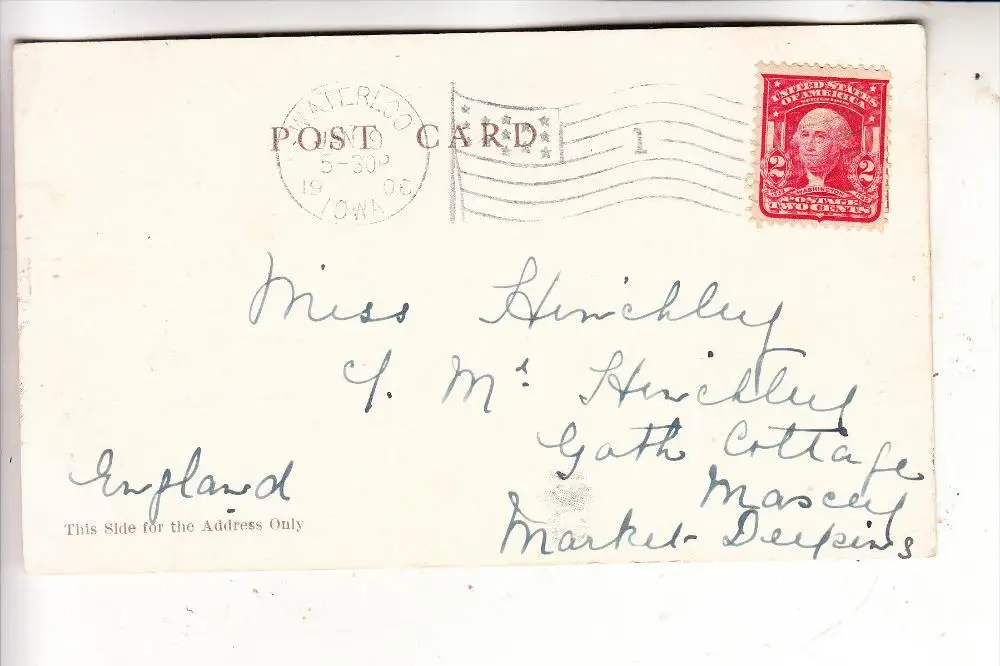 WATERLOO
5-30P
19 06
IOWA
POST CARD
1
UNITED STATES
OF AMERICA
2 2
WASHINGTON
POSTAGE
TWO CENTS
Miss Hinchley
c/. Mrs Hinchley
Goth Cottage
Market Deepings
England
This Side for the Address Only